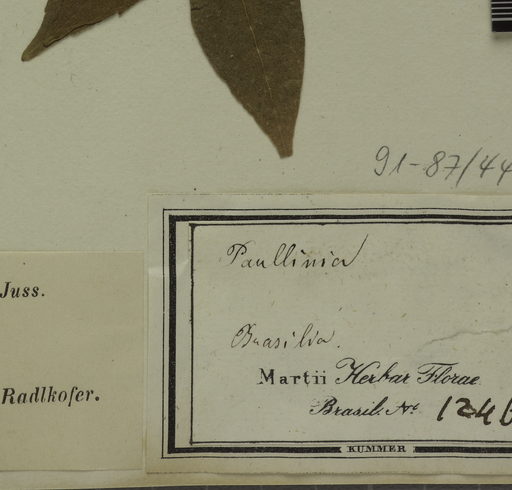 91-87/44
Juss.
Radlkofer.
Paullinia
Brasilia.
Martii Herbar Florae
Brasil. No. 1246
KUMMER